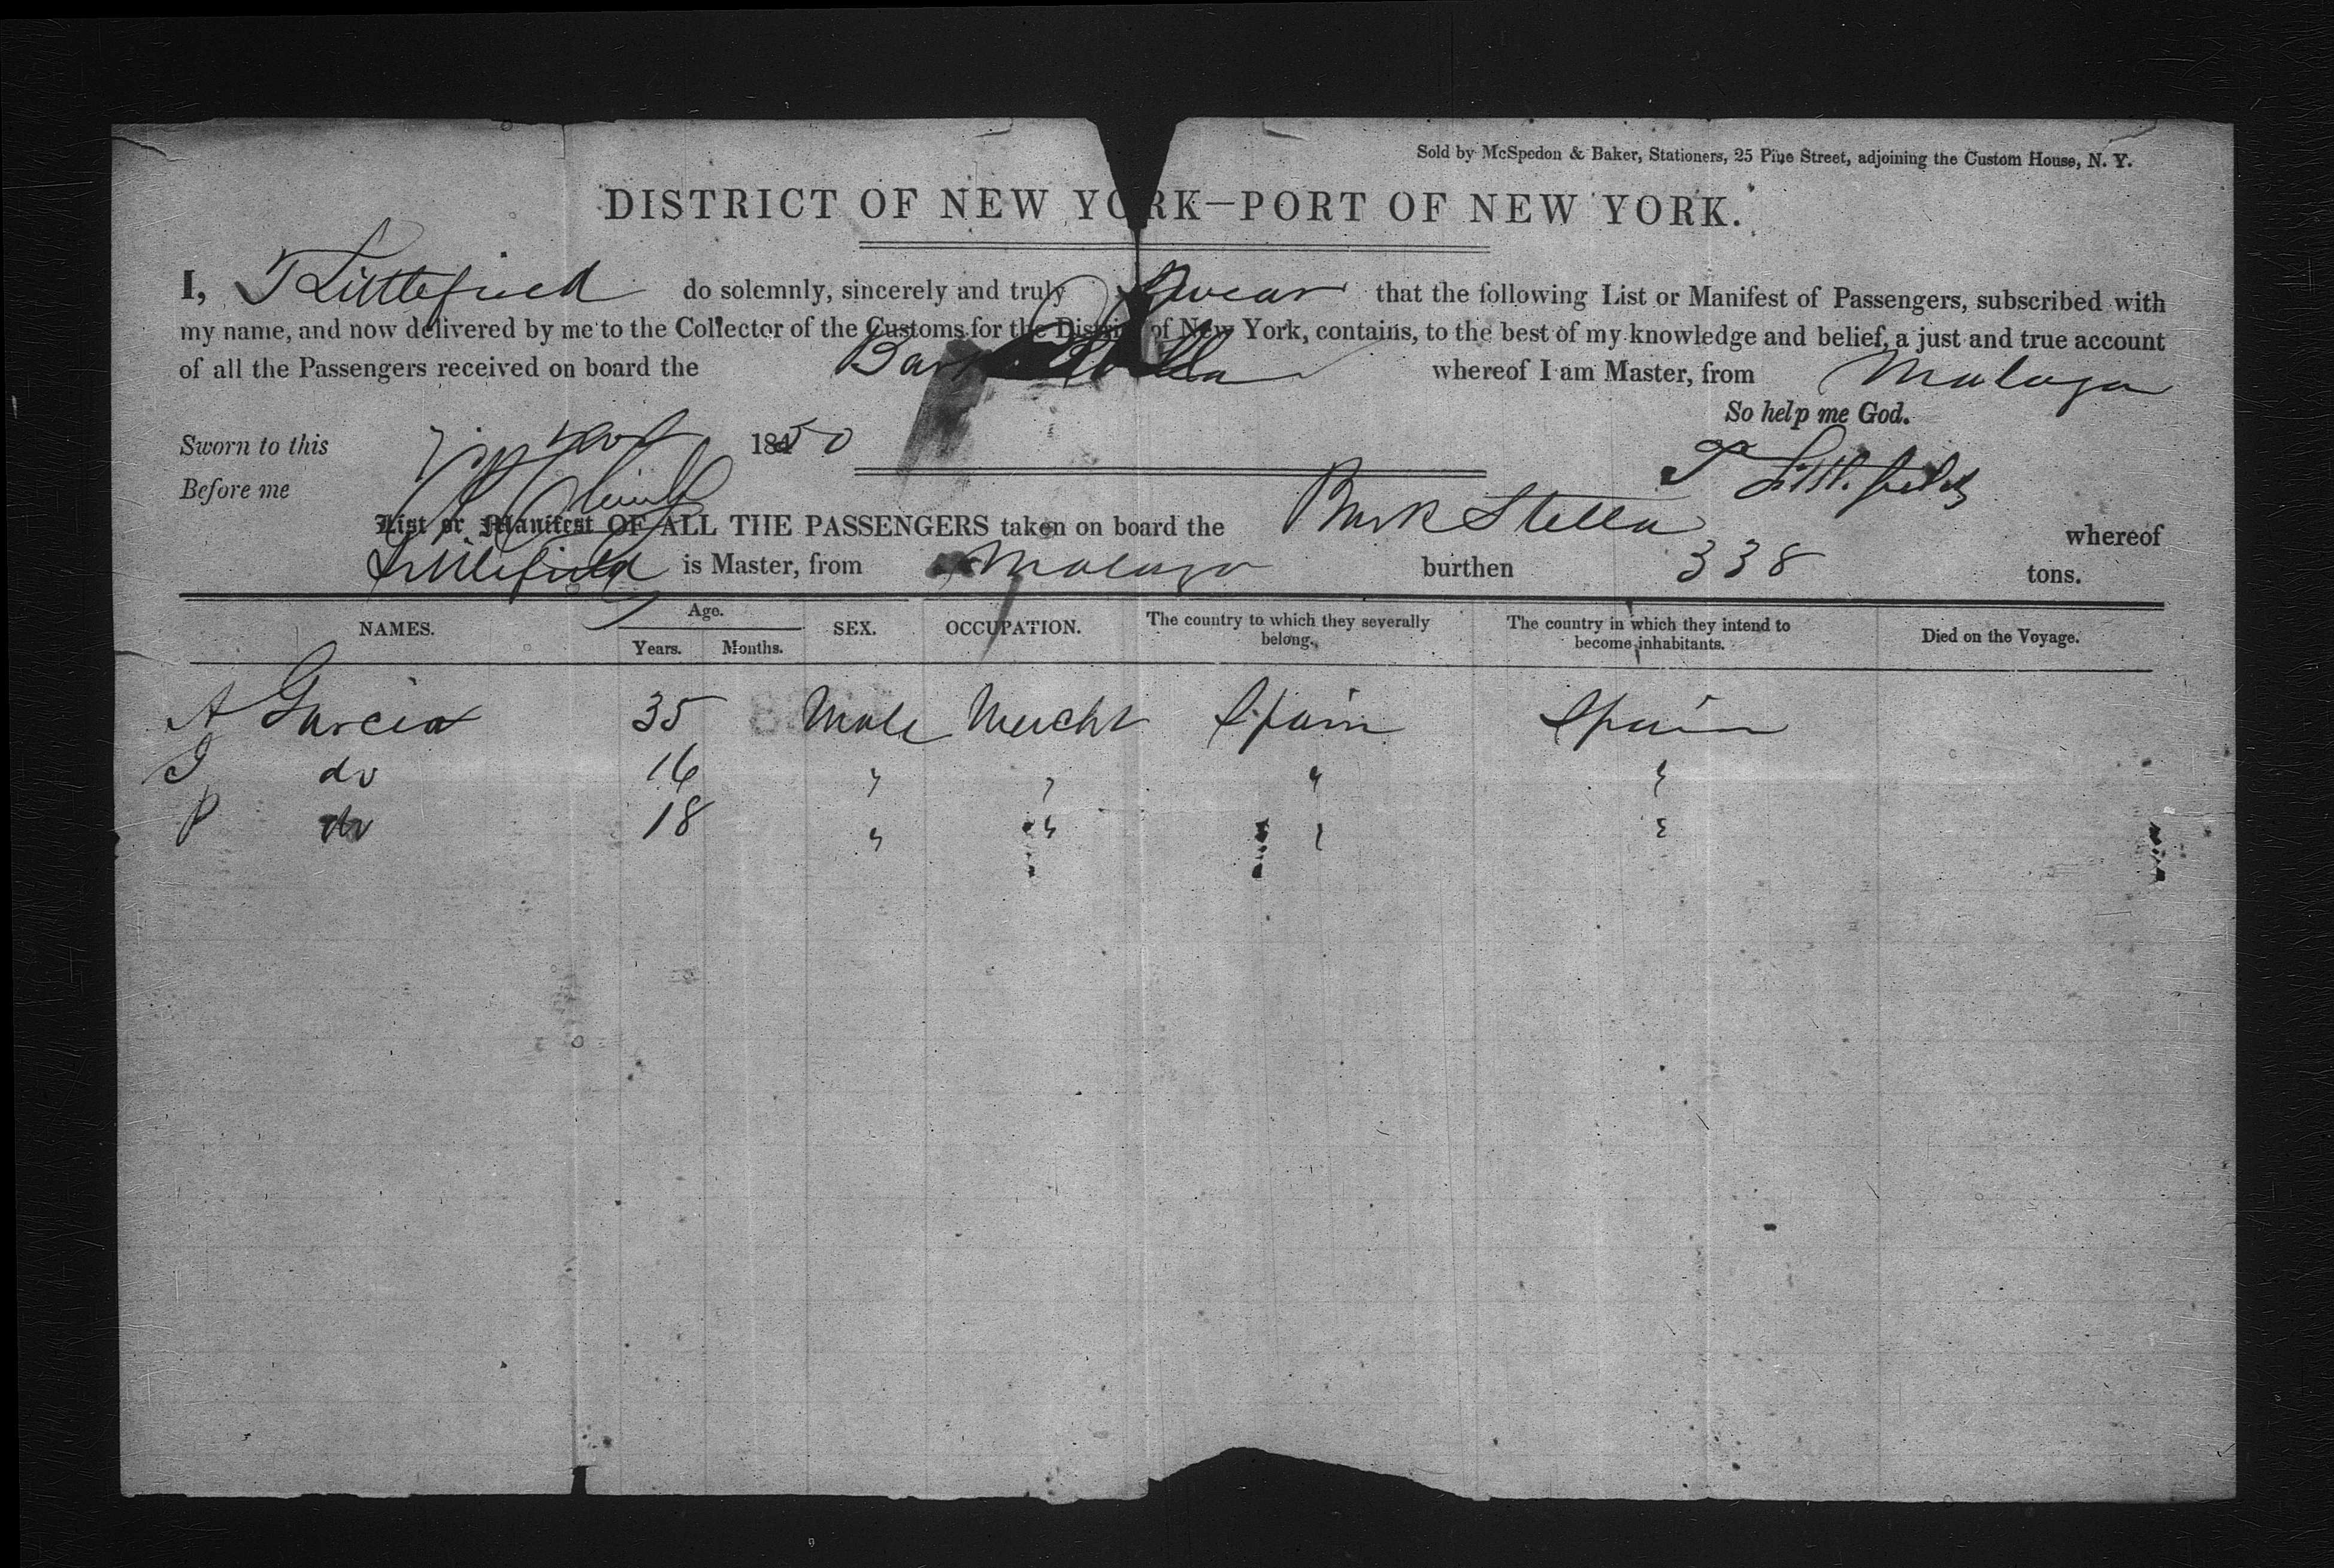 Sold by McSpedon & Baker, Stationers, 25 Pine Street, adjoining the Custom House, N. Y.
DISTRICT OF NEW YORK—PORT OF NEW YORK.
I, T Littlefield do solemnly, sincerely and truly Swear that the following List or Manifest of Passengers, subscribed with
my name, and now delivered by me to the Collector of the Customs for the District of New York, contains, to the best of my knowledge and belief, a just and true account
of all the Passengers received on board the Bark Stella whereof I am Master, from Malaga
So help me God.
Sworn to this Nov 1850
T Littlefield
Before me
List or Manifest OF ALL THE PASSENGERS taken on board the Bark Stella whereof
Littlefield is Master, from Malaga burthen 338 tons.
NAMES. Age. Years. Months. SEX. OCCUPATION. The country to which they severally belong. The country in which they intend to become inhabitants. Died on the Voyage.
A Garcia 35 Male Mercht Spain Spain
J do 16 " " " "
P do 18 " " " "